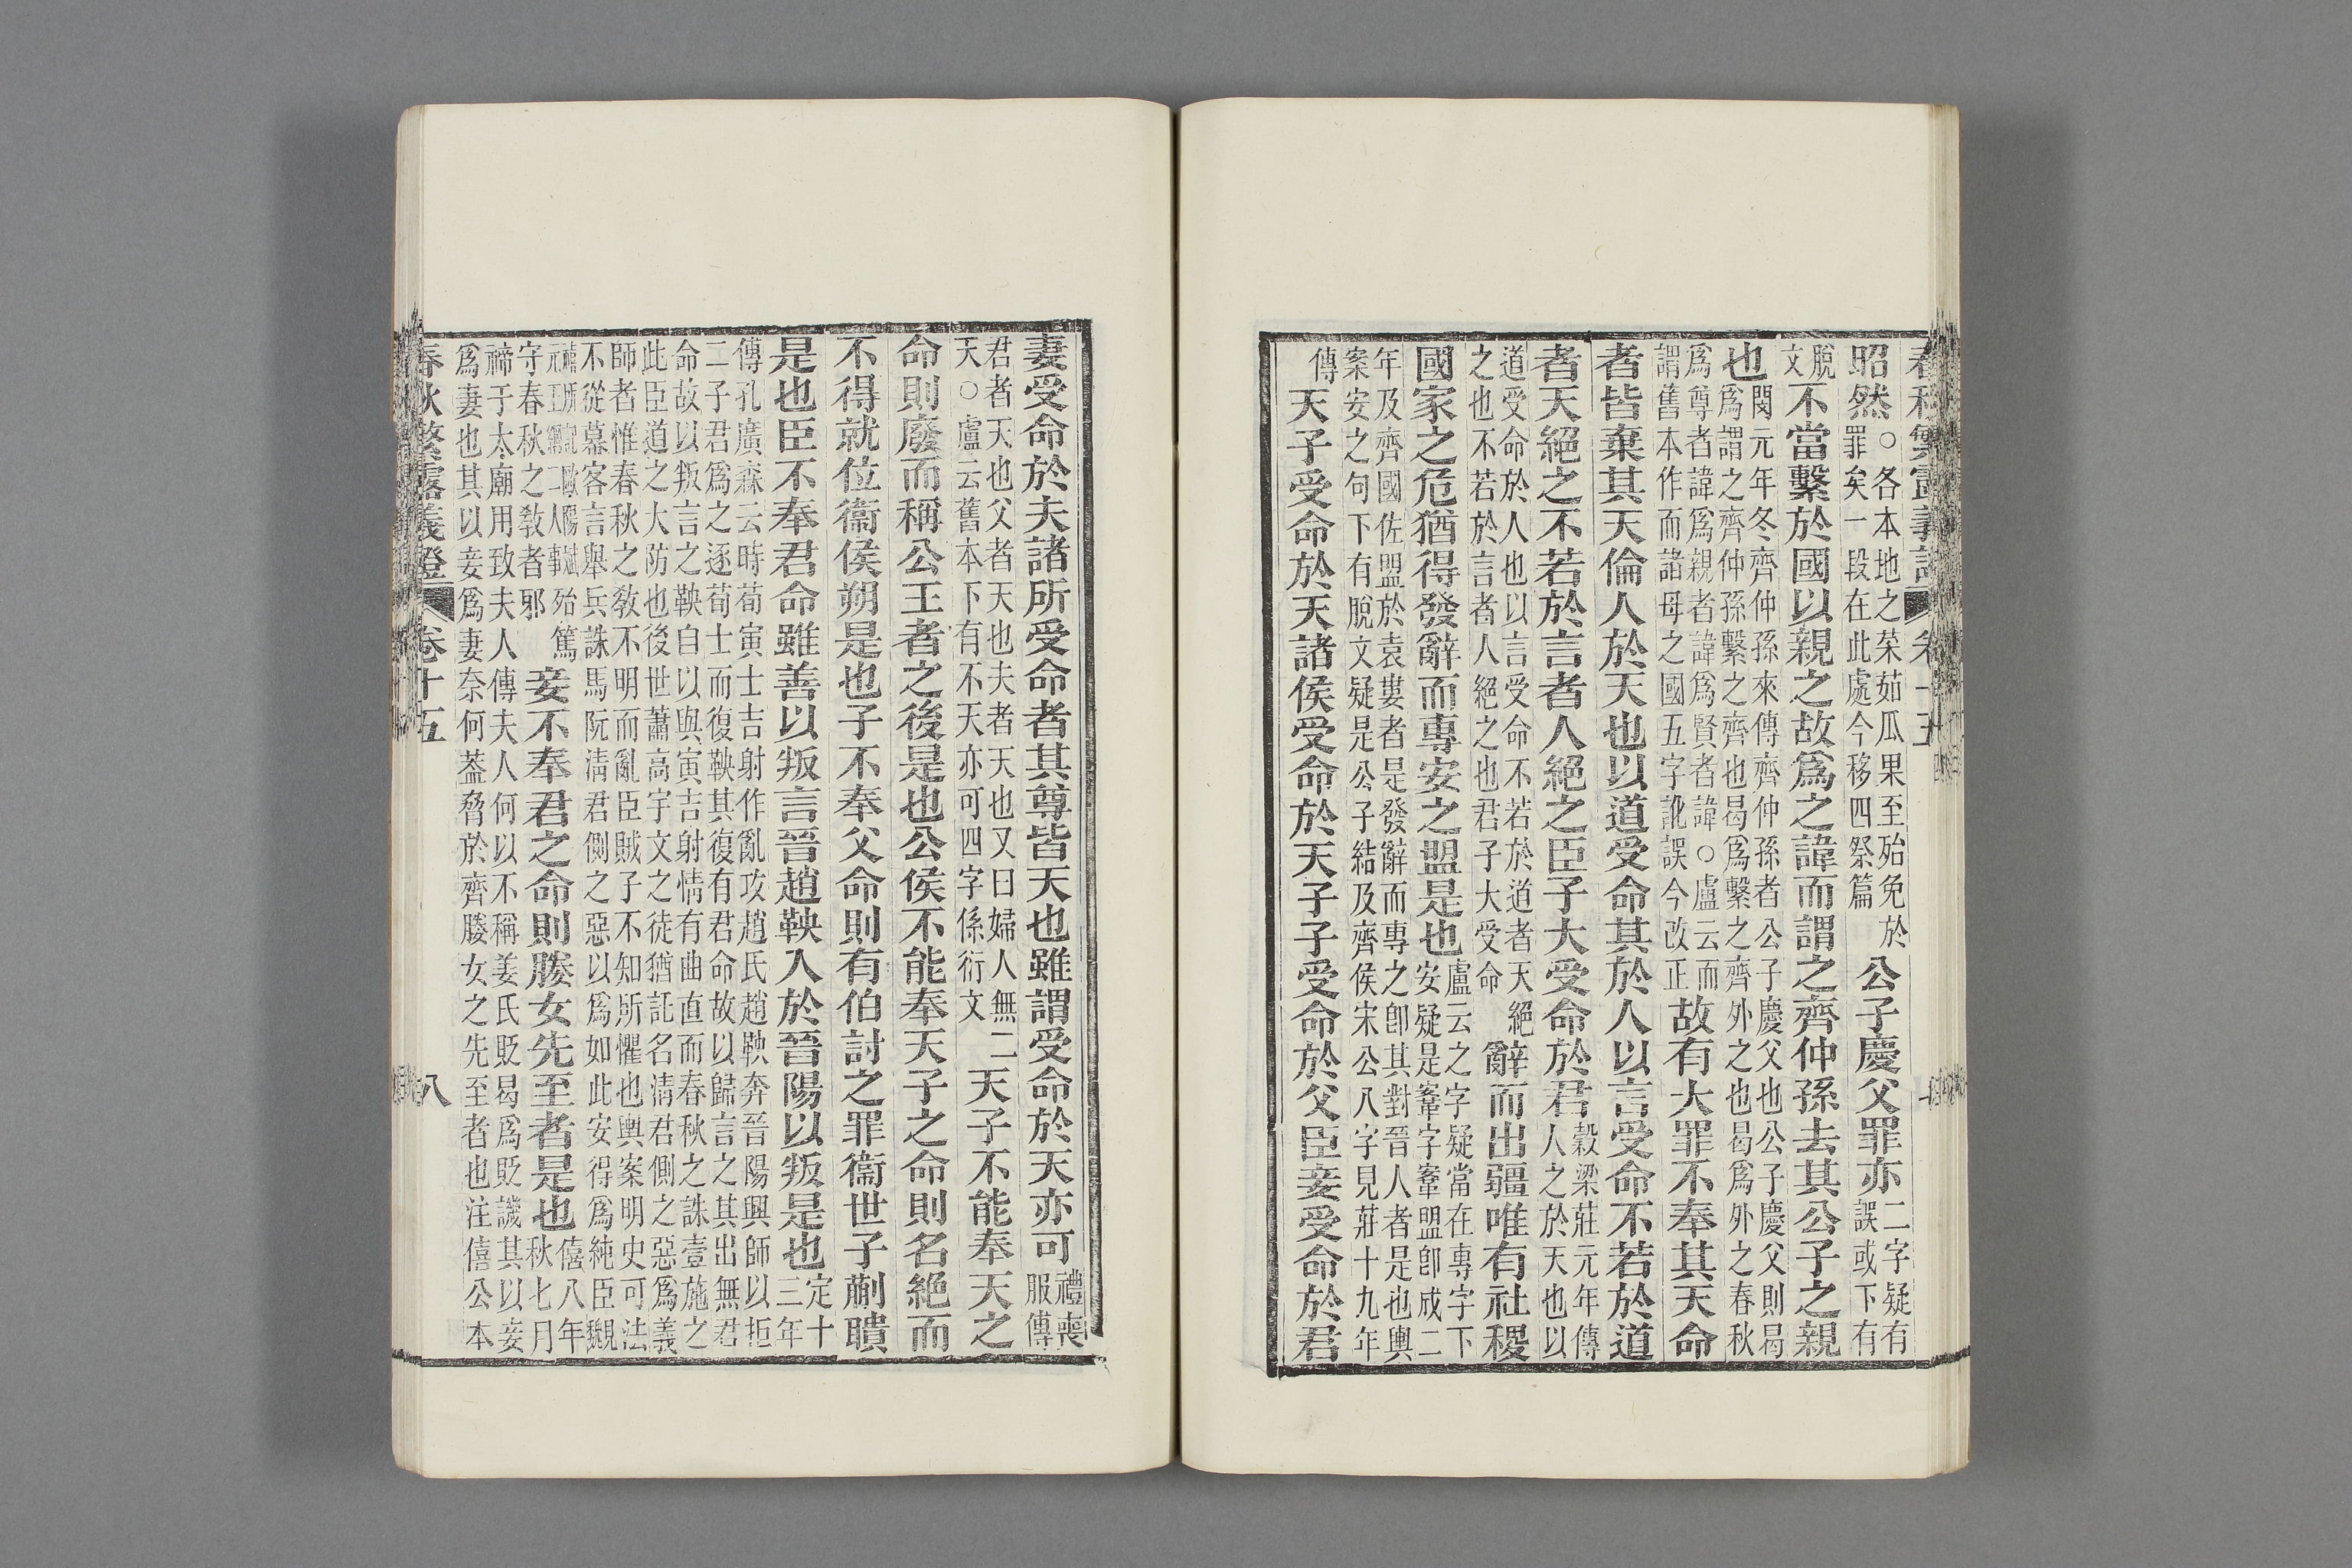 春秋繁露義證 卷十五
昭然○各本地之菜茹瓜果至殆免於罪矣一段在此處今移四祭篇公子慶父罪亦二字疑有誤或下有
脫文不當繫於國以親之故爲之諱而謂之齊仲孫去其公子之親
也閔元年冬齊仲孫來傳齊仲孫者公子慶父也公子慶父則曷爲謂之齊仲孫繫之齊也曷爲繫之齊外之也曷爲外之春秋
爲尊者諱爲親者諱爲賢者諱○盧云而謂舊本作而諸母之國五字訛誤今改正故有大罪不奉其天命
者皆棄其天倫人於天也以道受命其於人以言受命不若於道
者天絕之不若於言者人絕之臣子大受命於君穀梁莊元年傳人之於天也以
道受命於人也以言受命不若於道者天絕之也不若於言者人絕之也君子大受命辭而出疆唯有社稷
國家之危猶得發辭而專安之盟是也盧云之字疑當在專字下安疑是鞌字鞌盟卽成二
年及齊國佐盟於袁婁者是發辭而專之卽其對晉人者是也輿案安之句下有脫文疑是公子結及齊侯宋公八字見莊十九年
傳天子受命於天諸侯受命於天子子受命於父臣妾受命於君
妻受命於夫諸所受命者其尊皆天也雖謂受命於天亦可禮喪服傳
君者天也父者天也夫者天也又曰婦人無二天○盧云舊本下有不天亦可四字係衍文天子不能奉天之
命則廢而稱公王者之後是也公侯不能奉天子之命則名絕而
不得就位衞侯朔是也子不奉父命則有伯討之罪衞世子蒯聵
是也臣不奉君命雖善以叛言晉趙鞅入於晉陽以叛是也定十三年
傳孔廣森云時荀寅士吉射作亂攻趙氏趙鞅奔晉陽興師以拒二子君爲之逐荀士而復鞅其復有君命故以歸言之其出無君
命故以叛言之鞅自以與寅吉射情有曲直而春秋之誅壹施之此臣道之大防也後世蕭高宇文之徒猶託名清君側之惡爲義
師者惟春秋之敎不明而亂臣賊子不知所懼也輿案明史可法不從幕客言舉兵誅馬阮清君側之惡以爲如此安得爲純臣觀
守春秋之敎者邪妾不奉君之命則媵女先至者是也僖八年秋七月
禘于太廟用致夫人傳夫人何以不稱姜氏貶曷爲貶譏其以妾爲妻也其以妾爲妻奈何葢脅於齊媵女之先至者也注僖公本
春秋繁露義證 卷十五 八